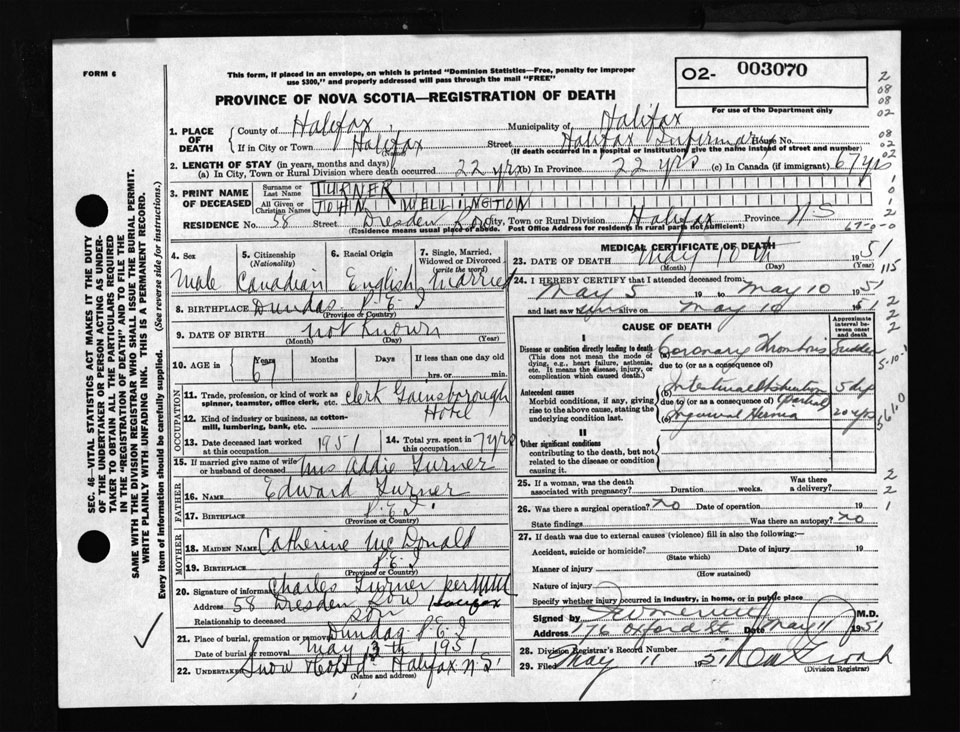 FORM 6
This form, if placed in an envelope, on which is printed "Dominion Statistics—Free, penalty for improper
use $300," and properly addressed will pass through the mail "FREE"
O2- 003070
For use of the Department only
PROVINCE OF NOVA SCOTIA—REGISTRATION OF DEATH
1. PLACE OF DEATH
County of Halifax Municipality of Halifax
If in City or Town Halifax Street Halifax Infirmary House No.
(Name) (If death occurred in a hospital or institution, give the name instead of street and number)
2. LENGTH OF STAY (in years, months and days)
(a) In City, Town or Rural Division where death occurred 22 yrs (b) In Province 22 yrs (c) In Canada (if immigrant) 67 yrs
3. PRINT NAME OF DECEASED
Surname or Last Name TURNER
All Given or Christian Names JOHN WELLINGTON
RESIDENCE No. 58 Street Dresden Row City, Town or Rural Division Halifax Province N S
(Residence means usual place of abode. Post Office Address for residents in rural parts not sufficient)
4. Sex 5. Citizenship (Nationality) 6. Racial Origin 7. Single, Married, Widowed or Divorced (write the word)
Male Canadian English Married
8. BIRTHPLACE Dundas P.E.I
(Province or Country)
9. DATE OF BIRTH not known
(Month) (Day) (Year)
10. AGE in Years 67 Months Days If less than one day old
hrs. or min.
OCCUPATION
11. Trade, profession, or kind of work as spinner, teamster, office clerk, etc. clerk Gainsborough
12. Kind of industry or business, as cotton-mill, lumbering, bank, etc. Hotel
13. Date deceased last worked at this occupation 1951 14. Total yrs. spent in this occupation 7 yrs
15. If married give name of wife or husband of deceased Mrs Addie Turner
FATHER
16. NAME Edward Turner
17. BIRTHPLACE P.E.I.
(Province or Country)
MOTHER
18. MAIDEN NAME Catherine McDonald
19. BIRTHPLACE P.E.I
(Province or Country)
20. Signature of informant Charles Turner per
Address 58 Dresden Row Halifax
Relationship to deceased son
21. Place of burial, cremation or removal Dundas P.E.I
Date of burial or removal May 13th 1951
22. Undertaker Snow & Co Ltd. Halifax N.S.
(Name and address)
MEDICAL CERTIFICATE OF DEATH
23. DATE OF DEATH May 10th 1951
(Month) (Day) (Year)
24. I HEREBY CERTIFY that I attended deceased from:
May 5 19 to May 10 1951
and last saw him alive on May 10 1951
CAUSE OF DEATH
Approximate interval between onset and death
I
Disease or condition directly leading to death
(This does not mean the mode of dying, e.g., heart failure, asthenia, etc. It means the disease, injury, or complication which caused death.)
(a) Coronary Thrombosis sudden
due to (or as a consequence of)
Antecedent causes
Morbid conditions, if any, giving rise to the above cause, stating the underlying condition last.
(b) Intestinal Obstruction (partial) 5 days
due to (or as a consequence of)
(c) Inguinal Hernia 20 yrs
II
Other significant conditions
contributing to the death, but not related to the disease or condition causing it.
25. If a woman, was the death associated with pregnancy? Duration weeks. Was there a delivery?
26. Was there a surgical operation? no Date of operation 19
State findings Was there an autopsy? no
27. If death was due to external causes (violence) fill in also the following:—
Accident, suicide or homicide? Date of injury 19
(State which)
Manner of injury
(How sustained)
Nature of injury
Specify whether injury occurred in industry, in home, or in public place
Signed by M.D.
Address 76 Oxford St Date May 11 1951
28. Division Registrar's Record Number
29. Filed May 11 1951
(Division Registrar)
SEC. 46—VITAL STATISTICS ACT MAKES IT THE DUTY
OF THE UNDERTAKER OR PERSON ACTING AS UNDER-
TAKER TO OBTAIN ALL THE PARTICULARS REQUIRED
IN THE "REGISTRATION OF DEATH" AND TO FILE THE
SAME WITH THE DIVISION REGISTRAR WHO SHALL ISSUE THE BURIAL PERMIT.
WRITE PLAINLY WITH UNFADING INK. THIS IS A PERMANENT RECORD.
Every item of information should be carefully supplied. (See reverse side for instructions.)
2
08
08
02
08
02
02
1
0
1
2
67-0-0
115
2
2
2
2
2
1